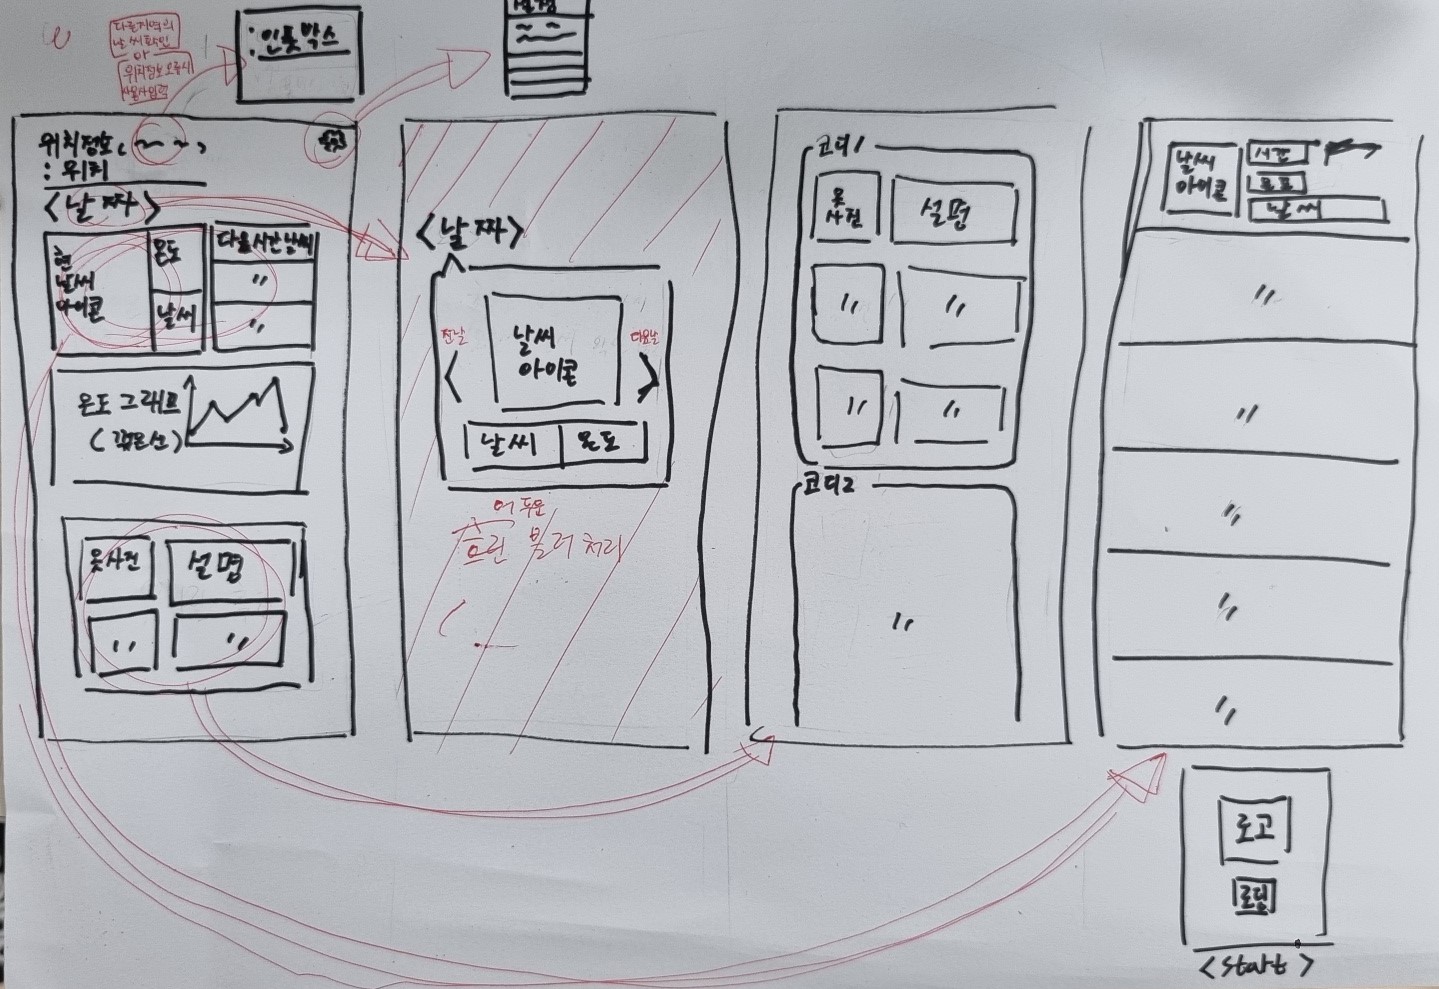 다른지역의
날씨확인
or
위치정보오류시
사용자입력
: 인풋박스
설정
위치정보, ~ ~,
: 위치
<날짜>
현
날씨
아이콘
온도
날씨
다음시간날씨
〃
〃
온도 그래프
(꺾은선)
옷사진
설명
〃
〃
<날짜>
전날
<
날씨
아이콘
다음날
>
날씨
온도
어두운
흐린 블러 처리
코디1
옷
사진
설명
〃
〃
〃
〃
코디2
〃
날씨
아이콘
시간
온도
날씨
〃
〃
〃
〃
〃
로고
로딩
<start>